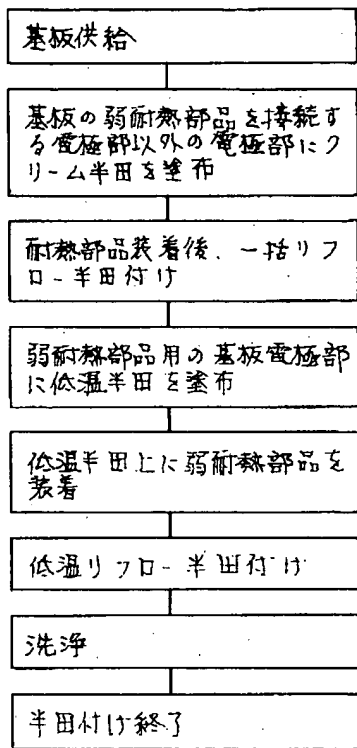 基板供給
基板の弱耐熱部品を接続す
る電極部以外の電極部にク
リーム半田を塗布
耐熱部品装着後、一括リフ
ロー半田付け
弱耐熱部品用の基板電極部
に低温半田を塗布
低温半田上に弱耐熱部品を
装着
低温リフロー半田付け
洗浄
半田付け終了